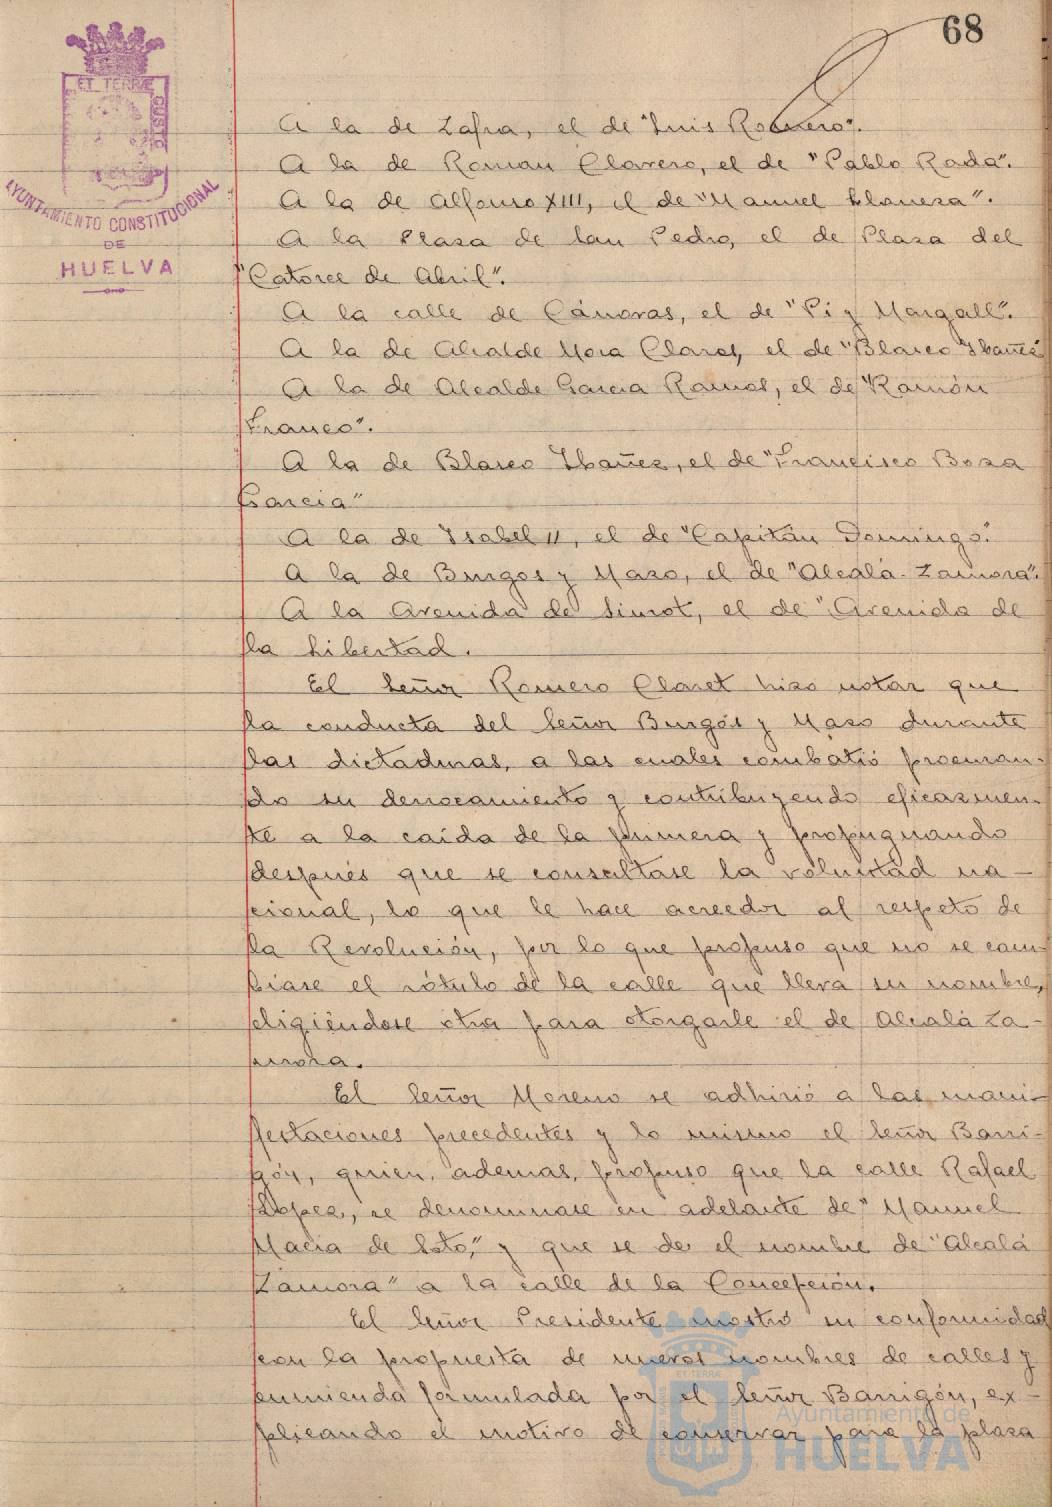 68
ET TERRÆ
CUSTO
AYUNTAMIENTO CONSTITUCIONAL
DE
HUELVA
A la de Zafra, el de "Luis Romero".
A la de Roman Clavero, el de "Pablo Rada".
A la de Alfonso XIII, el de "Manuel Llaneza".
A la Plaza de San Pedro, el de Plaza del
"Catorce de Abril".
A la calle de Cánovas, el de "Pi y Margall".
A la de Alcalde Mora Claros, el de "Blasco Ibañez
A la de Alcalde Garcia Ramos, el de "Ramón
Franco".
A la de Blasco Ibañez, el de "Francisco Boza
Garcia"
A la de Isabel II, el de "Capitán Domingo".
A la de Burgos y Mazo, el de "Alcalá-Zamora".
A la Avenida de Simot, el de "Avenida de
la Libertad.
El Señor Romero Claret hizo notar que
la conducta del Señor Burgós y Mazo durante
las dictaduras, a las cuales combatió procuran-
do su derrocamiento y contribuyendo eficazmen-
te a la caída de la primera y propugnando
después que se consultase la voluntad na-
cional, lo que le hace acreedor al respeto de
la Revolución, por lo que propuso que no se cam-
biase el rótulo de la calle que lleva su nombre,
eligiéndose otra para otorgarle el de Alcalá Za-
mora.
El Señor Moreno se adhirió a las mani-
festaciones precedentes y lo mismo el Señor Barri-
gón, quien, ademas, propuso que la calle Rafael
López, se denominase en adelante de "Manuel
Macia de Soto," y que se de el nombre de "Alcalá
Zamora" a la calle de la Concepción.
El Señor Presidente mostró su conformidad
con la propuesta de nuevos nombres de calles y
enmienda formulada por el Señor Barrigón, ex-
plicando el motivo de conservar para la plaza
Ayuntamiento de
HUELVA